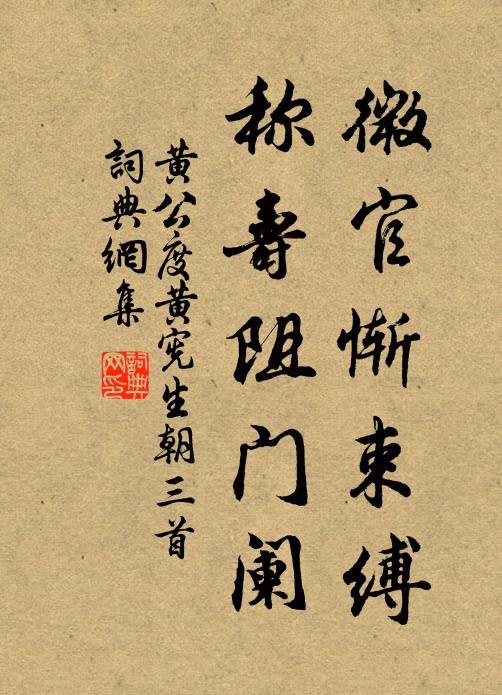 微官惭束缚
称寿阻门阑
黄公度黄宪生朝三首
詞典網集
詞典网印